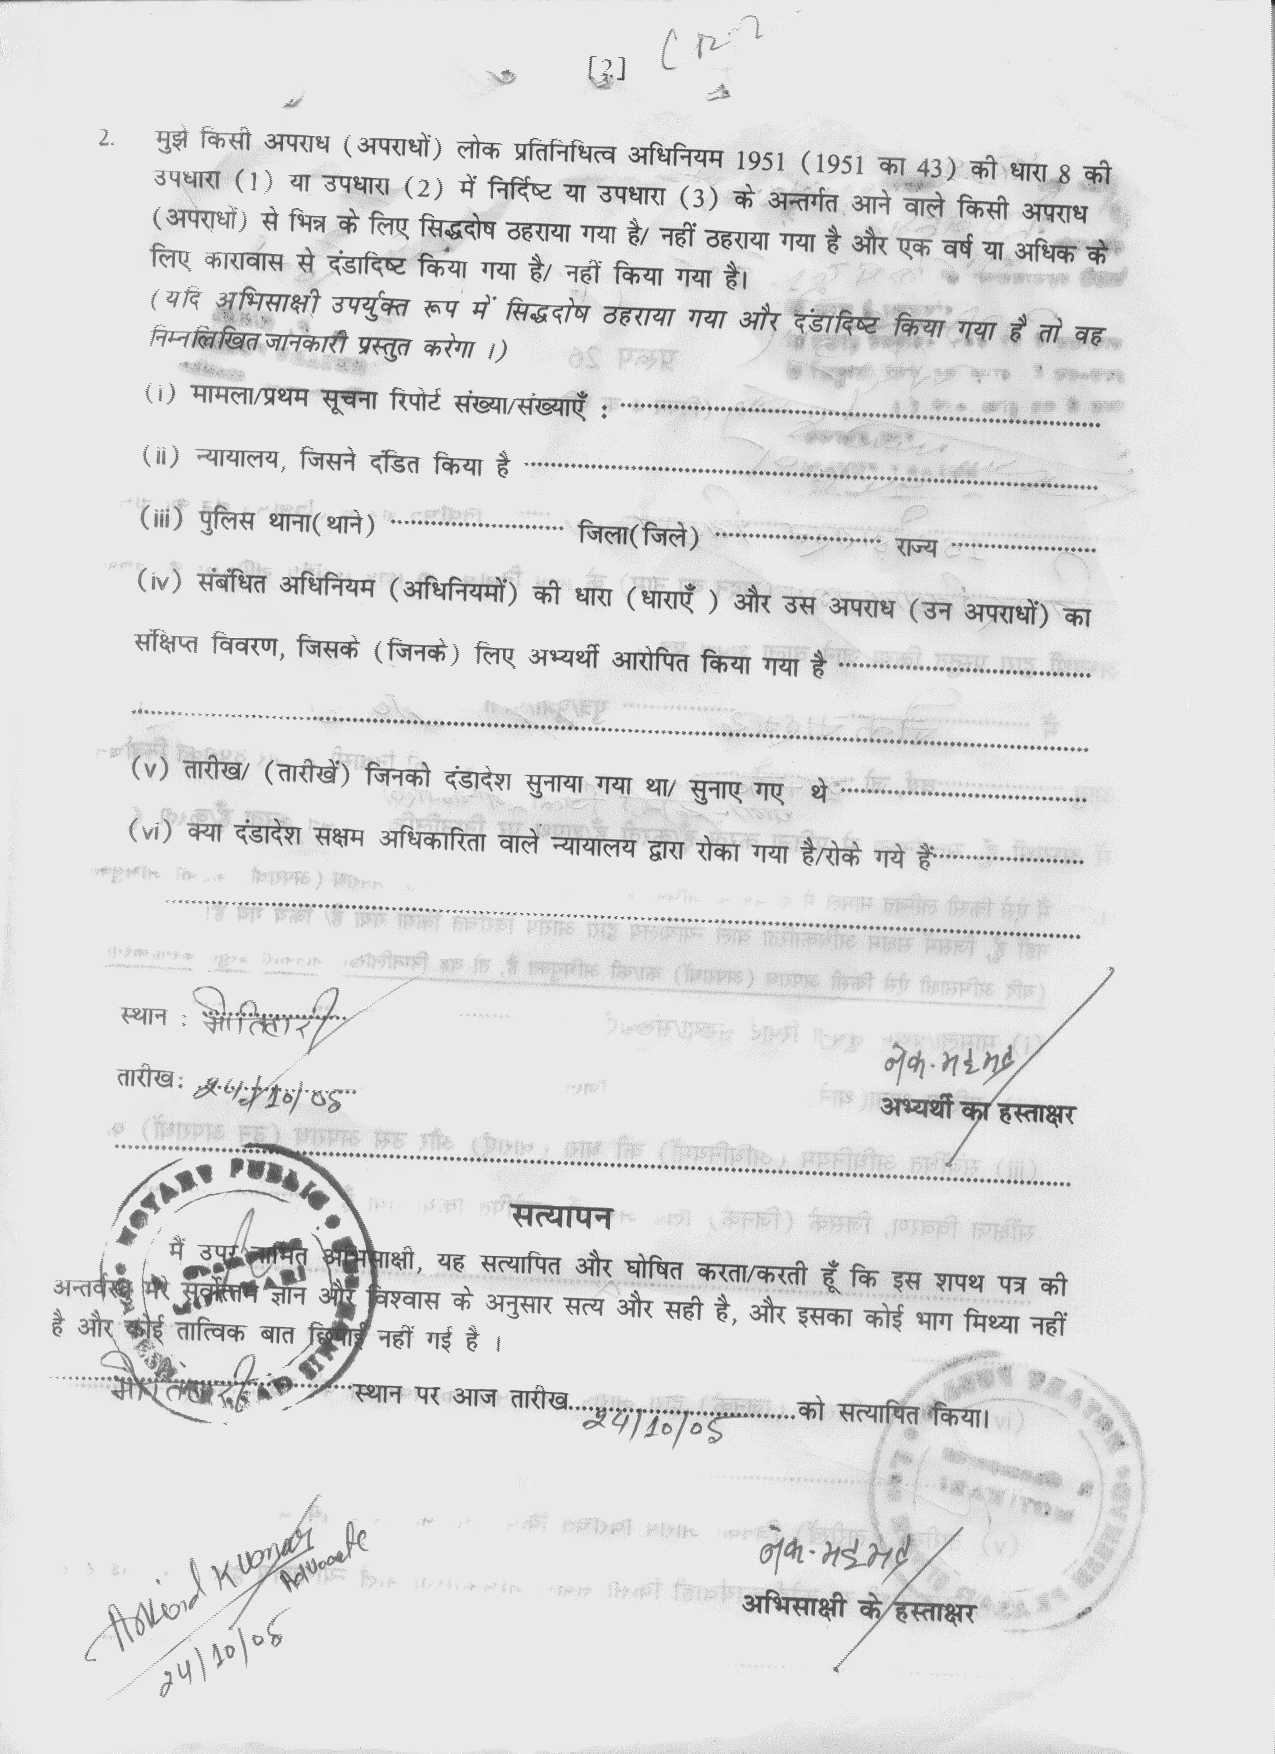 [2]
2. मुझे किसी अपराध (अपराधों) लोक प्रतिनिधित्व अधिनियम 1951 (1951 का 43) की धारा 8 की
उपधारा (1) या उपधारा (2) में निर्दिष्ट या उपधारा (3) के अन्तर्गत आने वाले किसी अपराध
(अपराधों) से भिन्न के लिए सिद्धदोष ठहराया गया है/ नहीं ठहराया गया है और एक वर्ष या अधिक के
लिए कारावास से दंडादिष्ट किया गया है/ नहीं किया गया है।
(यदि अभिसाक्षी उपर्युक्त रूप में सिद्धदोष ठहराया गया और दंडादिष्ट किया गया है तो वह
निम्नलिखित जानकारी प्रस्तुत करेगा ।)
(i) मामला/प्रथम सूचना रिपोर्ट संख्या/संख्याएँ :
(ii) न्यायालय, जिसने दंडित किया है
(iii) पुलिस थाना(थाने) जिला(जिले) राज्य
(iv) संबंधित अधिनियम (अधिनियमों) की धारा (धाराएँ ) और उस अपराध (उन अपराधों) का
संक्षिप्त विवरण, जिसके (जिनके) लिए अभ्यर्थी आरोपित किया गया है
(v) तारीख/ (तारीखें) जिनको दंडादेश सुनाया गया था/ सुनाए गए थे
(vi) क्या दंडादेश सक्षम अधिकारिता वाले न्यायालय द्वारा रोका गया है/रोके गये हैं
स्थान : मोतिहारी
तारीख: 24/10/05
नेक. महमद
अभ्यर्थी का हस्ताक्षर
NOTARY PUBLIC
सत्यापन
मैं उपर नामित अभिसाक्षी, यह सत्यापित और घोषित करता/करती हूँ कि इस शपथ पत्र की
अन्तर्वस्तु मेरे सर्वोत्तम ज्ञान और विश्वास के अनुसार सत्य और सही है, और इसका कोई भाग मिथ्या नहीं
है और कोई तात्विक बात छिपाई नहीं गई है ।
मोतिहारी स्थान पर आज तारीख 24/10/05 को सत्यापित किया।
नेक. महमद
अभिसाक्षी के हस्ताक्षर
Kumar
Advocate
24/10/05